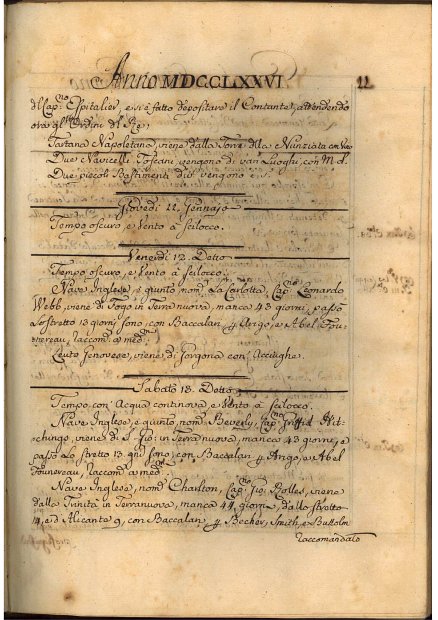 Anno MDCCLXXVI 11
del Cap.no Espitalier, e si è fatto depositare il Contante, attendendo
ora gl' Ordini del Rè;
Tartana Napoletana, viene dalla Torre della Nunziata con
Due Navicelli Toscani vengono di vari Luoghi, con M. di
Due piccoli Bastimenti vengono
Giovedì 11. Gennajo
Tempo oscuro, e Vento à Scilocco.
Venerdì 12. Detto
Tempo oscuro, e Vento à Scilocco.
Nave Inglese, è giunto, nom. La Carlotta, Cap.no Leonardo
Webb, viene di Fogo in Terranuova, manca 43 giorni, passò
Lo stretto 13 giorni sono, con Baccalan p Arigo, e Abel Fon-
nereau, raccom. a med.mi
Leuto Genovese, viene di Gorgona con Acciughe.
Sabato 13. Detto
Tempo con Acqua continova, e Vento à Scilocco.
Nave Inglese, è giunto, nom. Beverly, Cap.no Griffid Hit-
chingo, viene di S. Gio: in Terranuova, manca 43 giorni, e
passò Lo stretto 13 gni sono, con Baccalan p Arigo, e Abel
Fonnereau, raccom. a med.mi
Nave Inglese, nom. Charlton, Cap.no Gio: Rolles, viene
dalla Trinità in Terranuova, manca 44 giorni, dallo stretto
14, e d'Alicante 9, con Baccalan, p Becher, Smith, e
raccomandato